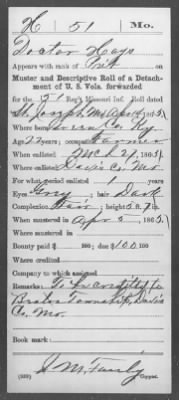 H 51 Mo.
Doctor Hays
Appears with rank of Priv on
Muster and Descriptive Roll of a Detachment
of U. S. Vols. forwarded
for the 51 Reg't Missouri Inf. Roll dated
St. Joseph Mo Apr 5, 1865.
Where born Green Co. Ky.
Age 22 years; occupation Farmer
When enlisted Mch 21, 1865.
Where enlisted Daviess Co. Mo.
For what period enlisted years.
Eyes Grey; hair Dark
Complexion Fair; height 5 ft. 7 in.
When mustered in Apr 5, 1865.
Where mustered in
Bounty paid $ 100; due $ 100 100
Where credited
Company to which assigned
Remarks: To be credited to
Township, Daviess
Co. Mo.
Book mark:
(339) Copyist.